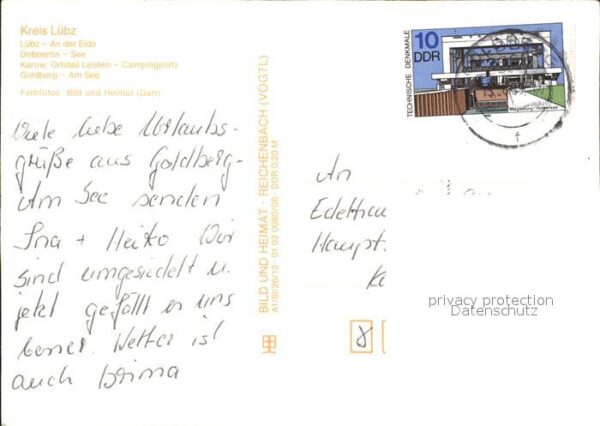 Kreis Lübz
Lübz – An der Elde
Dobbertin – See
Karow, Ortsteil Leisten – Campingplatz
Goldberg – Am See
Farbfotos: Bild und Heimat (Darr)
Viele liebe Urlaubs-
grüße aus Goldberg-
Am See senden
Ina + Heiko Wir
sind umgesiedelt u.
jetzt gefällt es uns
besser. Wetter ist
auch prima
BILD UND HEIMAT · REICHENBACH (VOGTL)
A1/III/26/13 · 01 02 0660/06 · DDR 0,20 M
TECHNISCHE DENKMALE
10
DDR
An
Haupt
privacy protection
Datenschutz
8